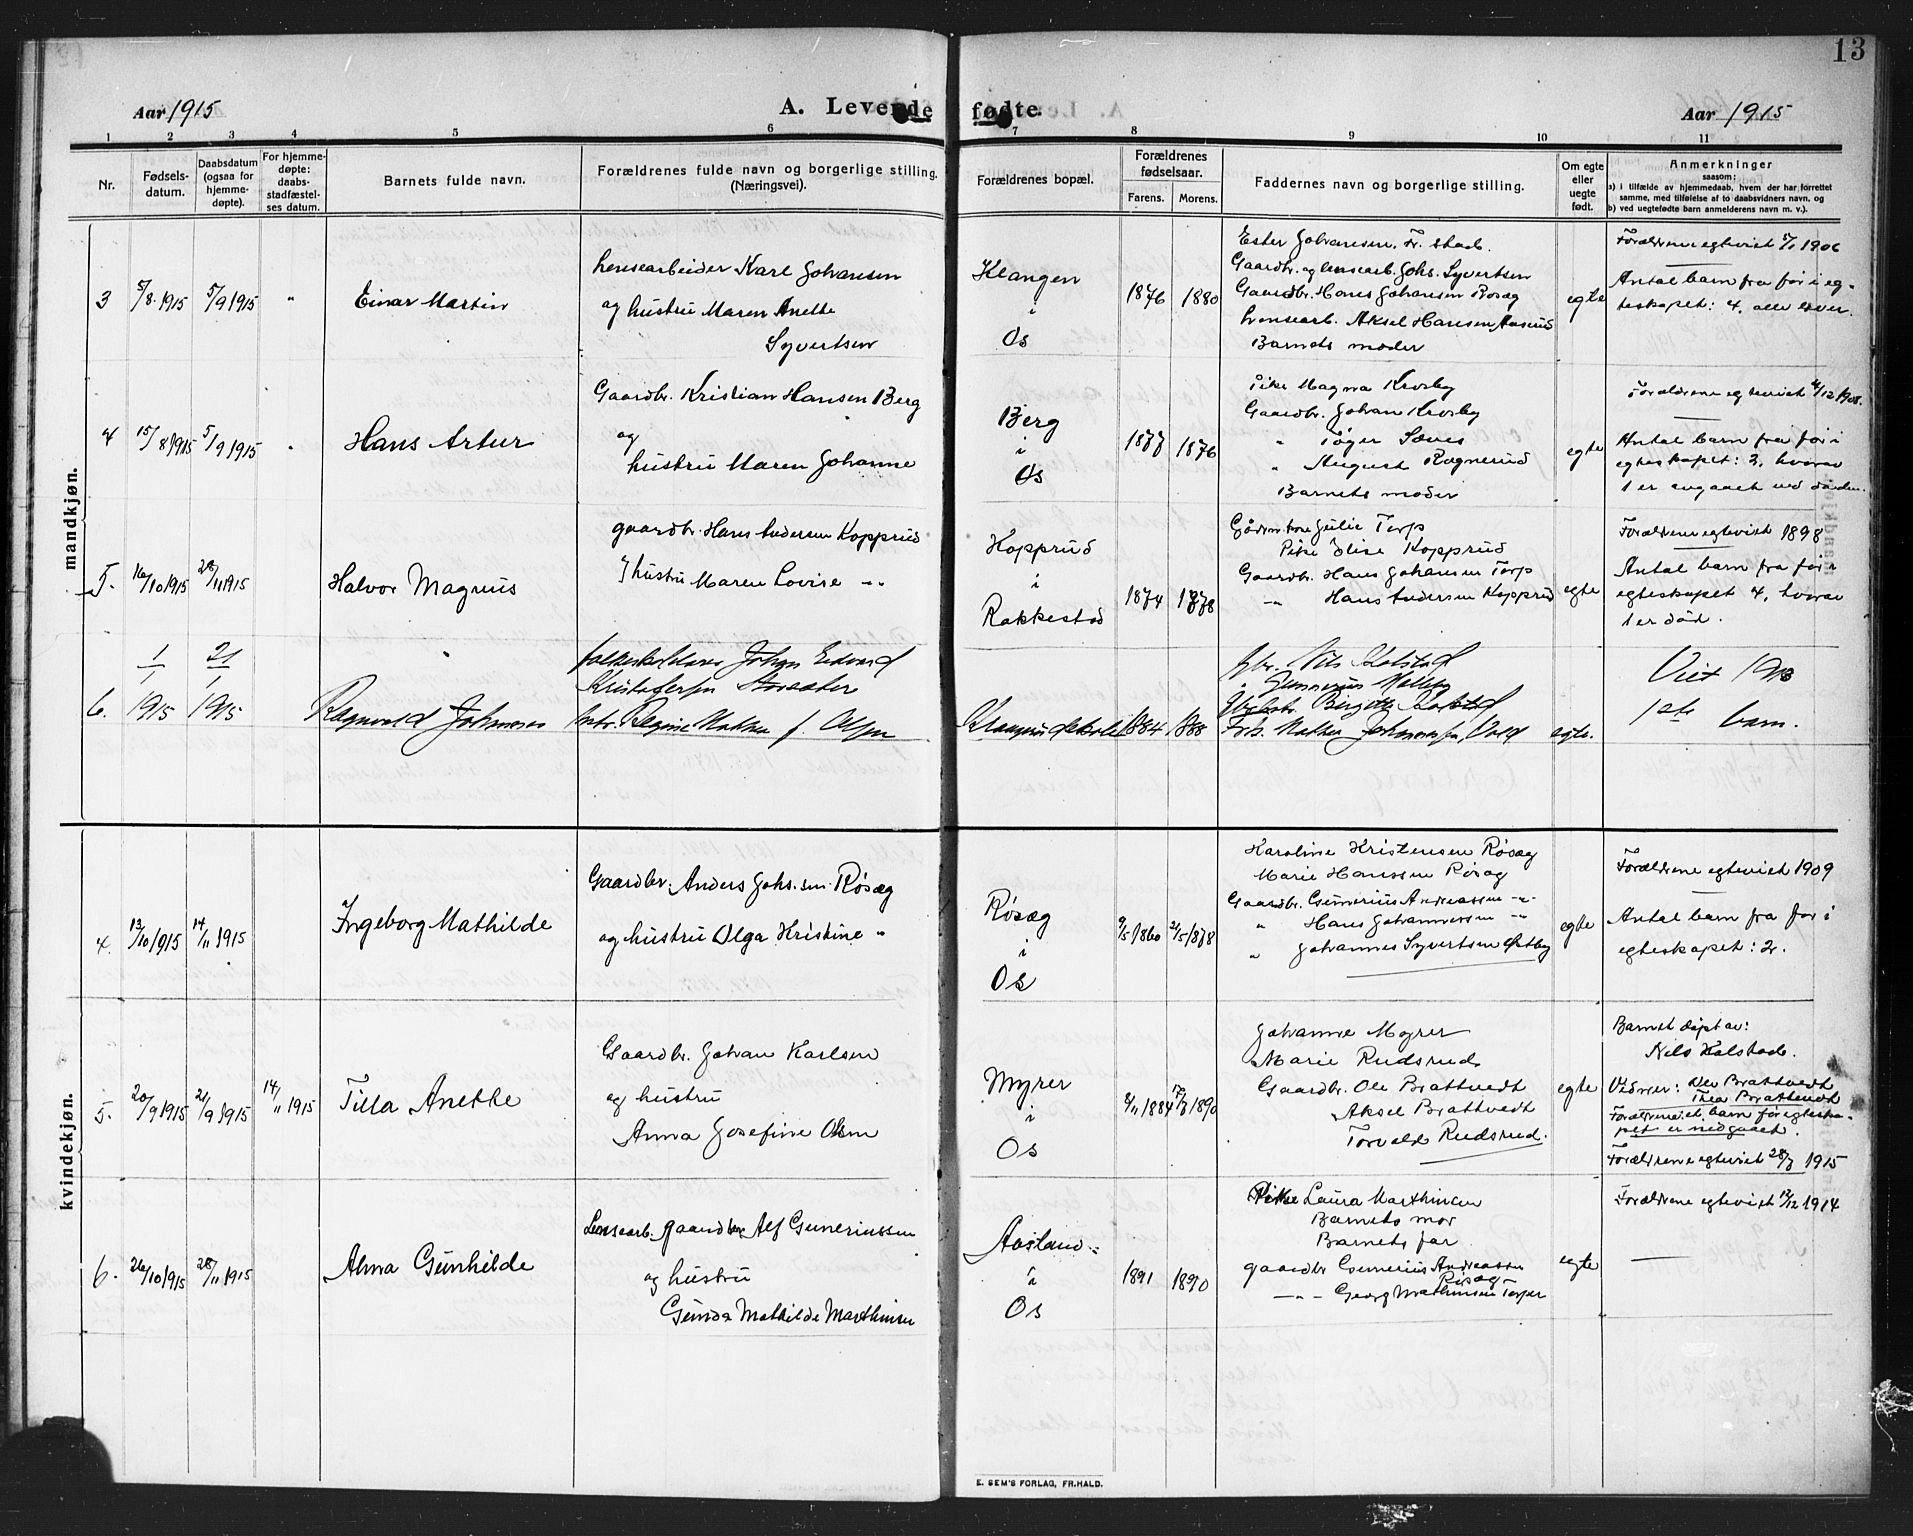 13
Aar 1915
A. Levende fødte.
Aar 1915
1 2 3 4 5 6 7 8 9 10 11
Nr.
Fødsels-
datum.
Daabsdatum
(ogsaa for
hjemme-
døpte).
For hjemme-
døpte:
daabs-
stadfæstel-
ses datum.
Barnets fulde navn.
Forældrenes fulde navn og borgerlige stilling.
(Næringsvei).
Forældrenes bopæl.
Forældrenes
fødselsaar.
Farens. Morens.
Faddernes navn og borgerlige stilling.
Om egte
eller
uegte
født.
Anmerkninger
saasom:
a) i tilfælde av hjemmedaab, hvem der har forrettet
samme, med tilføielse af to daabsvidners navn, og
b) ved uegtefødte barn anmelderens navn m. v.).
mandkjøn.
3
5/8 1915
5/9 1915
"
Einar Martin
Lensearbeider Karl Johansen
og hustru Maren Anette
Syvertsen
Klangen
i
Os
1876
1880
Ester Johansen, Fr.stad.
Gaardbr. og lensearb. Johs. Syvertsen
Gaardbr. Hans Johansen Røsæg
Lensearb. Aksel Hansen Aaserud
Barnets moder
egte
Forældrene egteviet 1906
Antal barn fra før i eg-
teskapet: 4, alle lever.
4
15/8 1915
5/9 1915
Hans Artur
Gaardbr. Kristian Hansen Berg
og
hustru Maren Johanne
Berg
i
Os
1877
1876
Pike Magna Krosby
Gaardbr. Johan Krosby
" August Rognerud
Barnets moder
egte
Forældrene egteviet 1908.
Antal barn fra før i
egteskapet: 2, hvorav
1 er avgaaet ved døden.
5.
16/10 1915
28/11 1915
Halvor Magnus
gaardbr. Hans Andersen Kopprud
hustru Maren Lovise -"-
Kopprud
i
Rakkestad
1874
1878
Julie Torp
Pike Elise Kopprud
Gaardbr. Hans Johansen Torp
-"- Hans Andersen Kopprud
egte
Forældrene egteviet 1898
Antal barn fra før i
egteskapet 4, hvorav
1 er død.
6.
1/1 1915
21/1 1915
Ragnvald Johannes
Johan Edvard
Kristofersen
hstr. Regine f. Olsen
1884
1888
Gbr. Nils Kolstad
Gunnerius
Birgitte Kolstad
egte.
Viet 1913
1ste barn.
kvindekjøn.
4.
13/10 1915
14/11 1915
Ingeborg Mathilde
Gaardbr. Anders Johs.sen Røsæg
og hustru Olga Kristine "
Røsæg
i
Os
9/5 1860
21/5 1878
Karoline Kristensen Røsæg
Marie Hanssen Røsæg
Gaardbr. Gunerius Andreassen -"-
" Hans Johannessen -"-
" Johannes Syvertsen Østby
egte
Forældrene egteviet 1909
Antal barn fra før i
egteskapet: 2.
5.
20/9 1915
21/9 1915
14/11 1915
Tilla Anethe
Gaardbr. Johan Karlsen
og hustru
Anna Josefine Olsen
Myrer
i
Os
8/11 1884
17/8 1890
Johanne Myrer
Marie Rudsrud
Gaardbr. Ole Brattvedt
Aksel Brattvedt
Torvald Rudsrud.
egte
Barnet døpt av:
Nils Kolstad.
Vidner: Ole Brattvedt
Thea Brattvedt
Forældrene egteviet 1915
6.
26/10 1915
28/11 1915
Alma Gunhilde
Lensearb. gaardbr. Alf Guneriussen
og hustru
Gunda Mathilde Marthinsen
Aasland
i
Os
1891
1890
Pike Laura Marthinsen
Barnets mor
Barnets far
gaardbr Gunerius Andreassen
Røsæg
-"- Georg Mathinsen Torper
egte
Forældrene egteviet 12/12 1914
E. SEM'S FORLAG, FR.HALD.